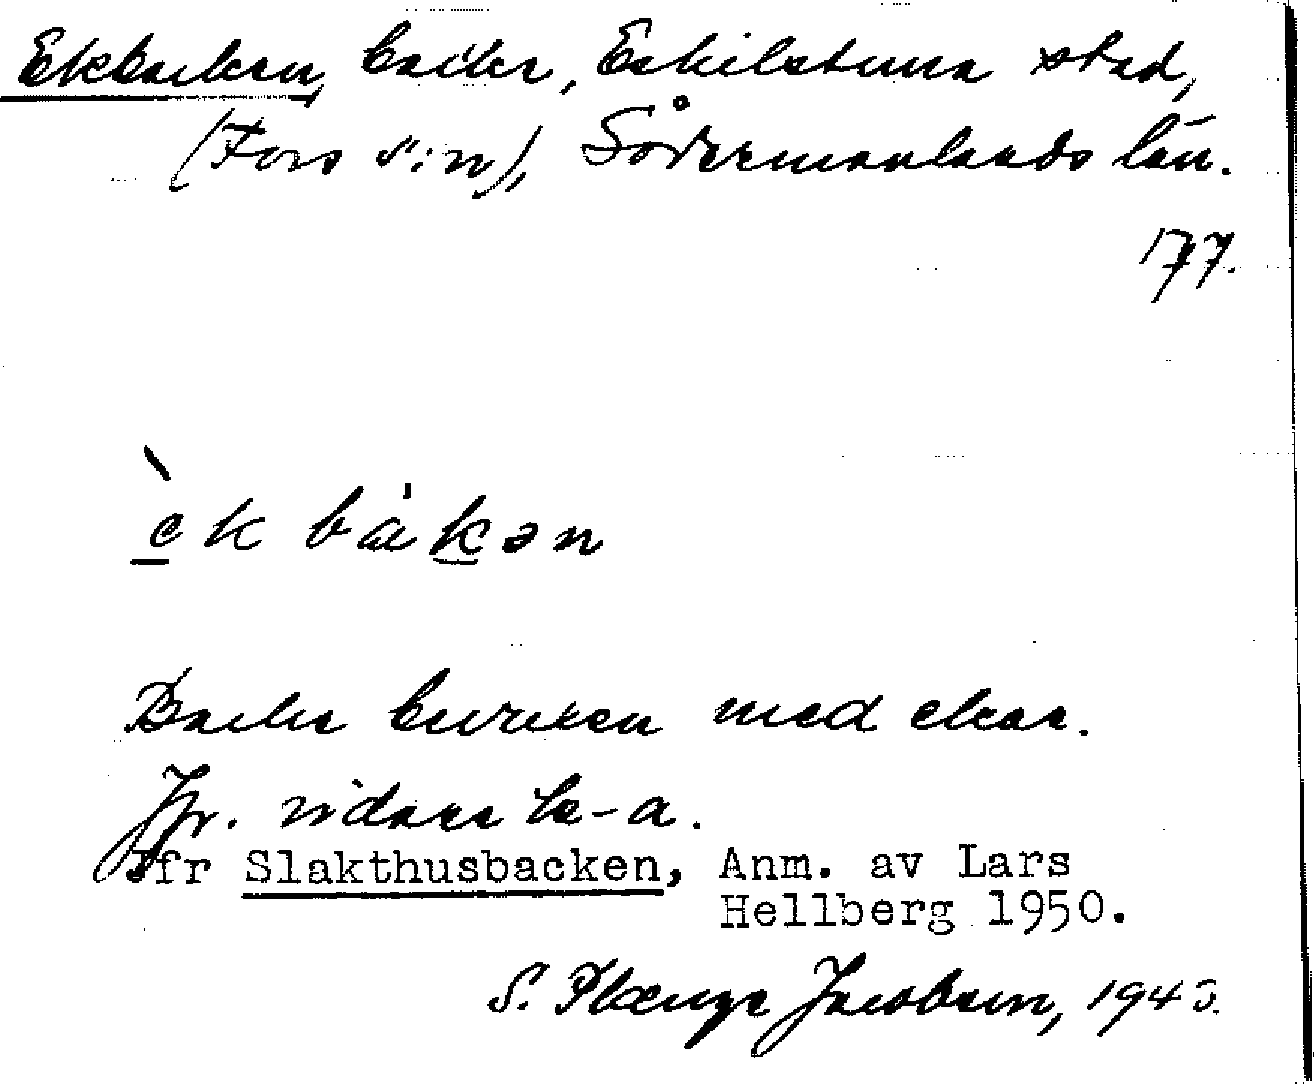 Ekbacken, backe, Eskilstuna stad,
(Fors s:n), Södermanlands län.
177.
èk bàkən
Backe bevuxen med ekar.
Jfr. vidare
Jfr Slakthusbacken, Anm. av Lars
Hellberg 1950.
S. Plænge Jacobson, 1943.